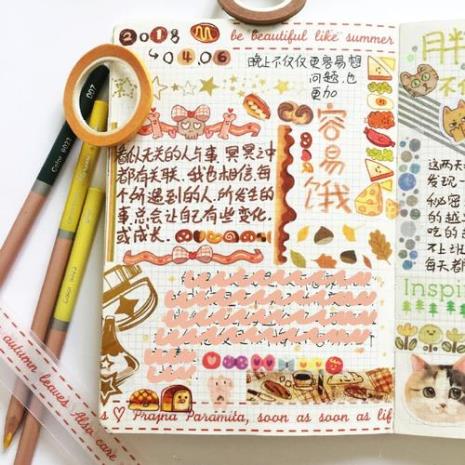 2018
04.06
be beautiful like summer
晚上不仅仅更容易想
问题,也
更加
容易饿
看似无关的人与事,冥冥之中
都有关联,我也相信,每
个所遇到的人,所发生的
事,总会让自己有些变化,
或成长.
Prajna Paramita, soon as soon as lif
autumn leaves Also care
月半
不
这两天
发现一
秘密
的越
吃的
不上班
每天都
Inspi
Color 9023
007